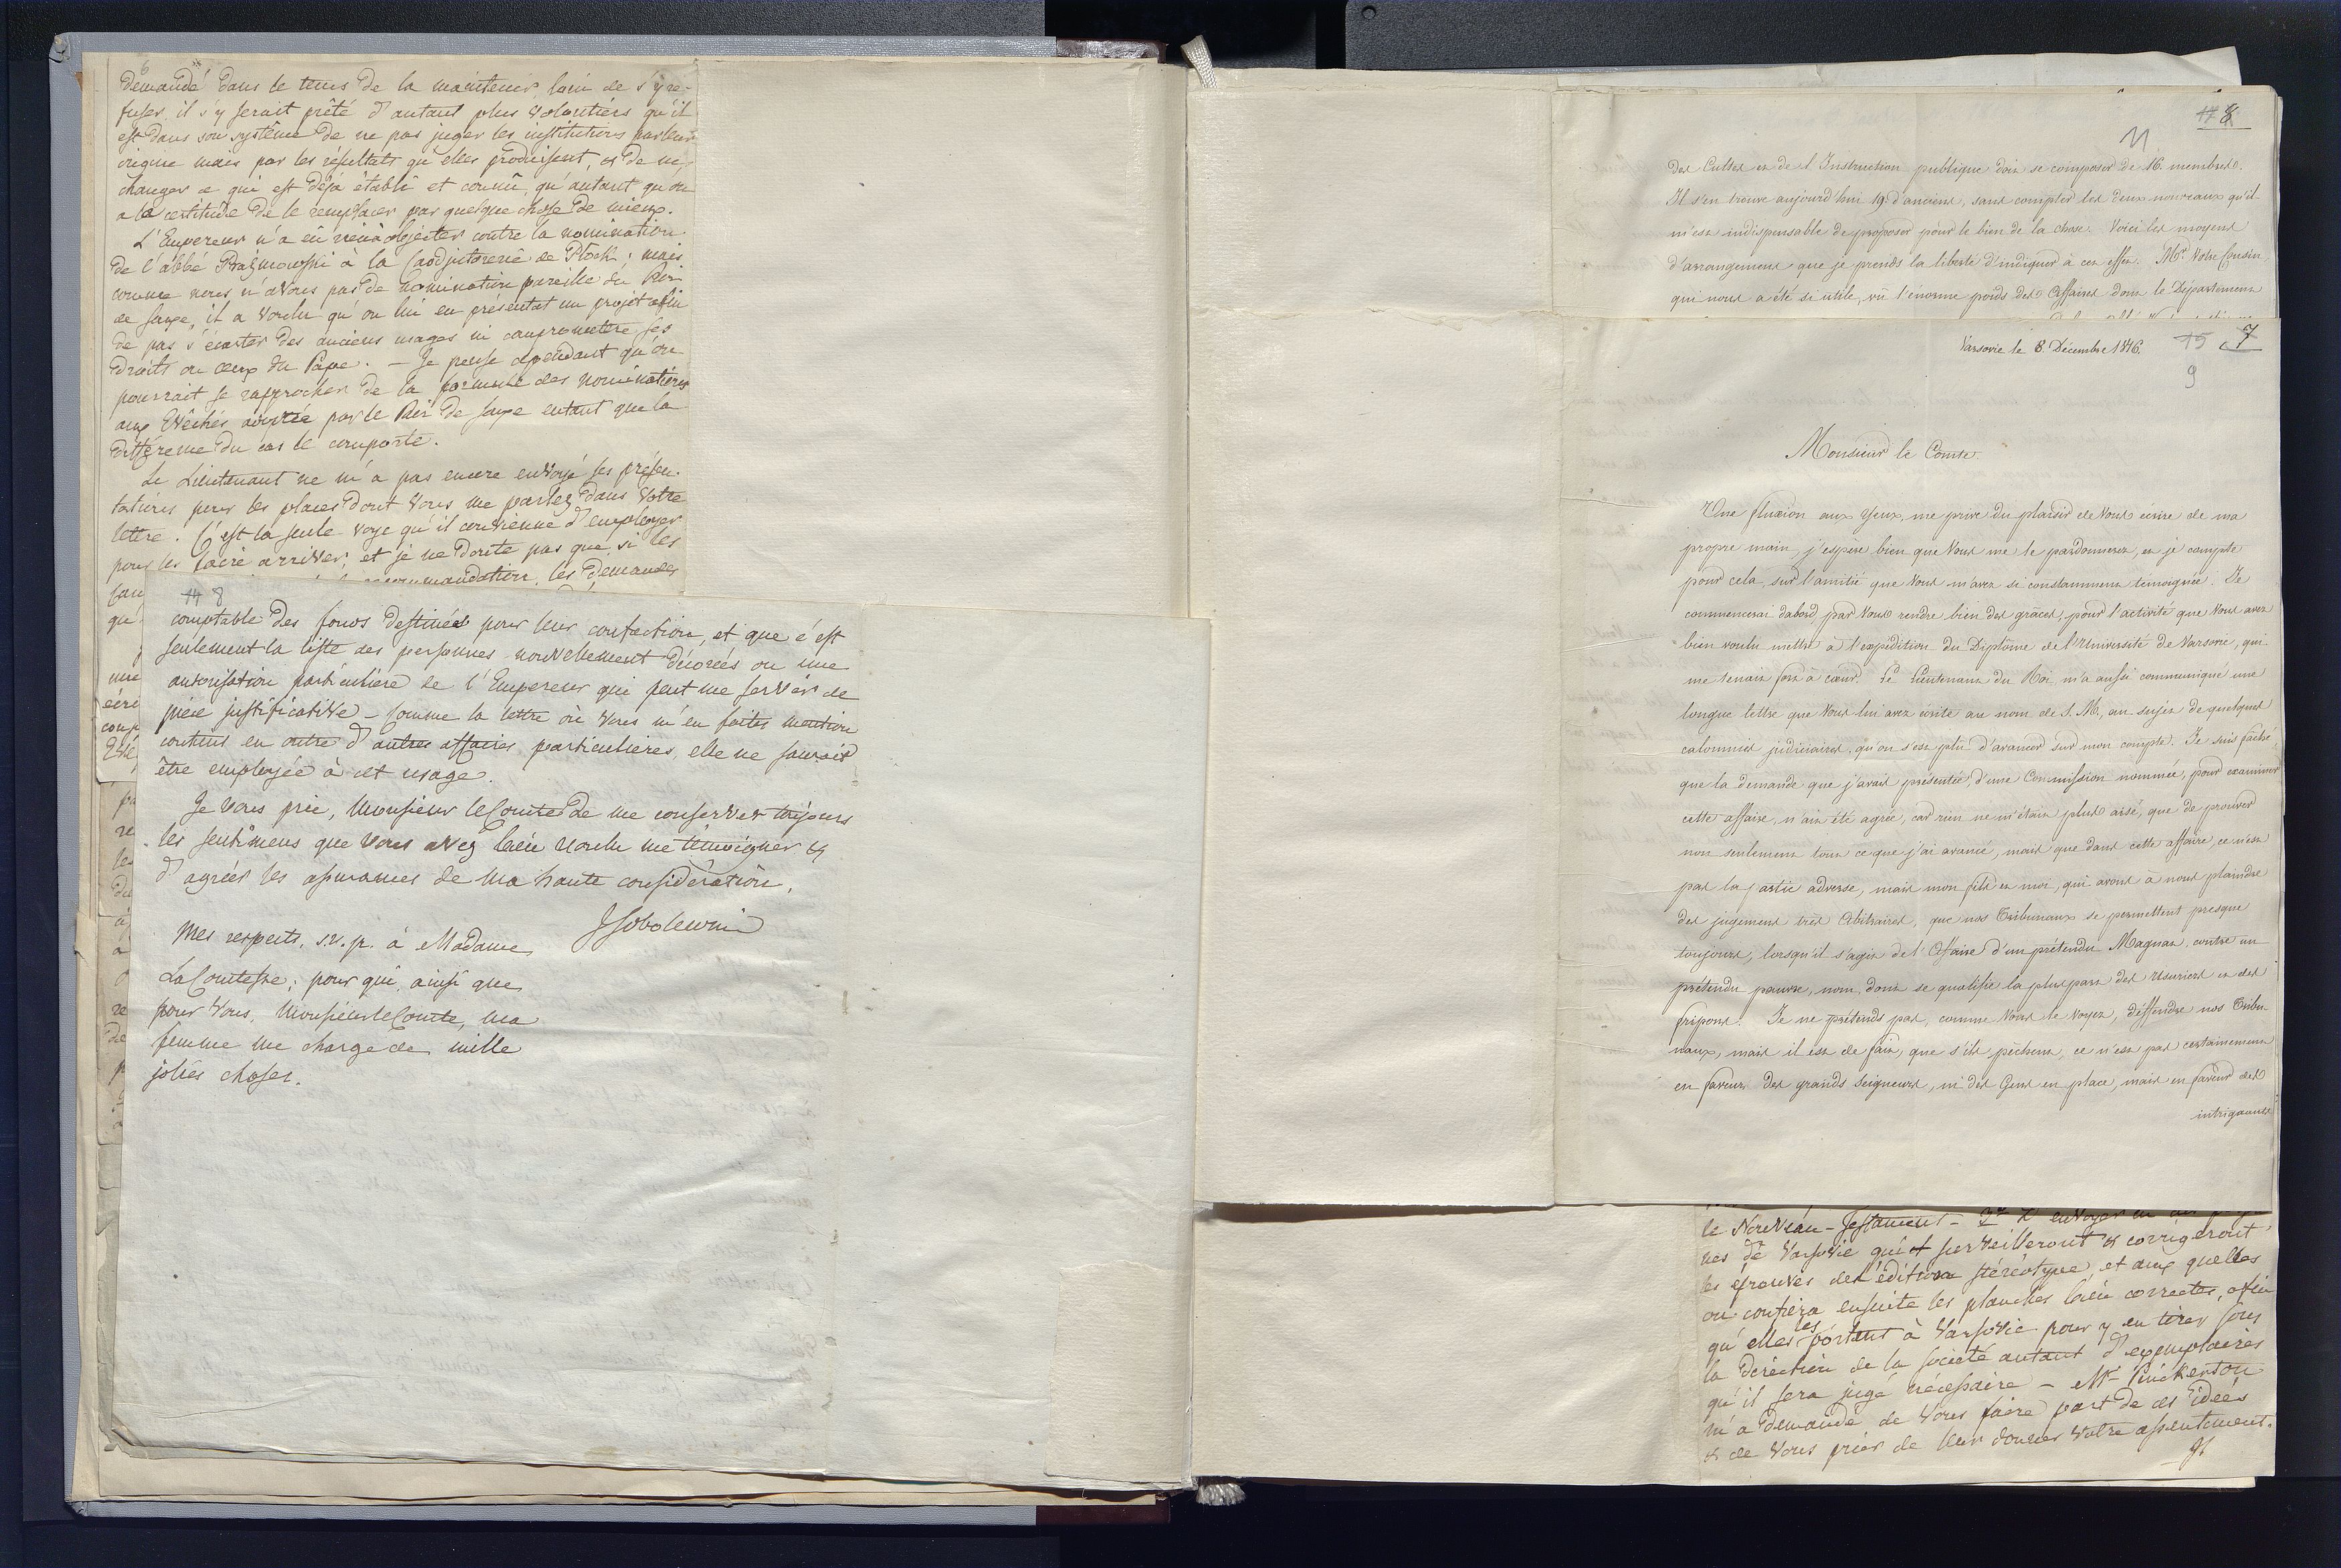 6
demandé dans le tems de la maintenir, loin de s'y re-
fuser, il s'y serait prêté d'autant plus volontiers qu'il
est dans son système de ne pas juger les institutions par leur
origine mais par les résultats qu'elles produisent, et de ne
changer ce qui est déjà établi et connû, qu'autant qu'on
a la certitude de le remplacer par quelque chose de mieux.
L'Empereur n'a eû rien à objecter contre la nomination
de l'abbé Prażmowski à la Coadjutorerie de Płock; mais
comme nous n'avons pas de nomination pareille du Roi
de Saxe, il a voulu qu'on lui en présentat un projet afin
de pas s'écarter des anciens usages ni compromettre ses
droits ou ceux du Pape. — Je pense cependant qu'on
pourrait se rapprocher de la formule des nominations
aux Evêchés adoptée par le Roi de Saxe entant que la
différence du cas le comporte.
Le Lieutenant ne m'a pas encore envoyé ses présen-
tations pour les places dont vous me parlez dans votre
lettre. C'est la seule voye qu'il convienne d'employer
pour les faire arriver; et je ne doute pas que, si les
recommandation, les demandes
14 8
comptable des fonds destinés pour leur confection, et que c'est
seulement la liste des personnes nouvellement décorées ou une
autorisation particulière de l'Empereur qui peut me servir de
pièce justificative — comme la lettre où vous m'en faites mention
contient en outre d'autres affaires particulieres, elle ne sauroit
être employée à cet usage.
Je vous prie, Monsieur le Comte de me conserver toujours
les sentimens que vous avez bien voulu me témoigner et
d'agréer les assurances de ma haute considération.
JSobolewski
Mes respects, s.v.p. à Madame
La Comtesse; pour qui, ainsi que
pour vous, Monsieur le Comte, ma
femme me charge de mille
jolies choses.
17 8
11
des Cultes et de l'Instruction publique doit se composer de 16. membres.
Il s'en trouve aujourd'hui 19. d'anciens, sans compter les deux nouveaux qu'il
m'est indispensable de proposer pour le bien de la chose. Voici les moyens
d'arrangement que je prends la liberté d'indiquer à cet effet. Mr Votre Cousin,
qui nous a été si utile, vû l'énorme poids des Affaires dont le Département
Varsovie le 8. Décembre 1816.
15 7
9
Monsieur le Comte.
Une fluxion aux yeux, me prive du plaisir de Vous écrire de ma
propre main, j'espère bien que Vous me le pardonnerez, et je compte
pour cela, sur l'amitié que Vous m'avez si constamment témoignée. Je
commencerai d'abord par Vous rendre bien des grâces, pour l'activité que Vous avez
bien voulu mettre à l'expédition du Diplôme de l'Université de Varsovie, qui
me tenait fort à coeur. Le Lieutenant du Roi m'a aussi communiqué une
longue lettre que Vous lui avez écrite au nom de S. M., au sujet de quelques
calomnies judiciaires, qu'on s'est plu d'avancer sur mon compte. Je suis fâché,
que la demande que j'avais présentée, d'une Commission nommée, pour examiner
cette affaire, n'ait été agrée, car rien ne m'étoit plus aisé, que de prouver
non seulement tout ce que j'ai avancé, mais que dans cette affaire, ce n'est
pas la partie adverse, mais mon fils et moi, qui avons à nous plaindre
des jugemens très Arbitraires, que nos Tribunaux se permettent presque
toujours, lorsqu'il s'agit de l'Affaire d'un prétendu Magnat, contre un
prétendu pauvre, nom, dont se qualifie la plus part des Usuriers et des
fripons. Je ne prétends pas, comme Vous le voyez, déffendre nos Tribu
naux, mais il est de fait, que s'ils pêchent, ce n'est pas certainement
en faveur des grands Seigneurs, ni des Gens en place, mais en faveur des
intriguants
le Nouveau-Testament — 2° d'envoyer
nes de Varsovie qui surveilleront et corrigeront
les épreuves de l'édition stéréotype, et aux quelles
on confiera ensuite les planches bien correctes, afin
qu'elles les portent à Varsovie pour y en tirer sous
la direction de la société autant d'exemplaires
qu'il sera jugé nécessaire — Mr Pinckerton
m'a demandé de vous faire part de ces idées
et de vous prier de leur donner votre assentiment.